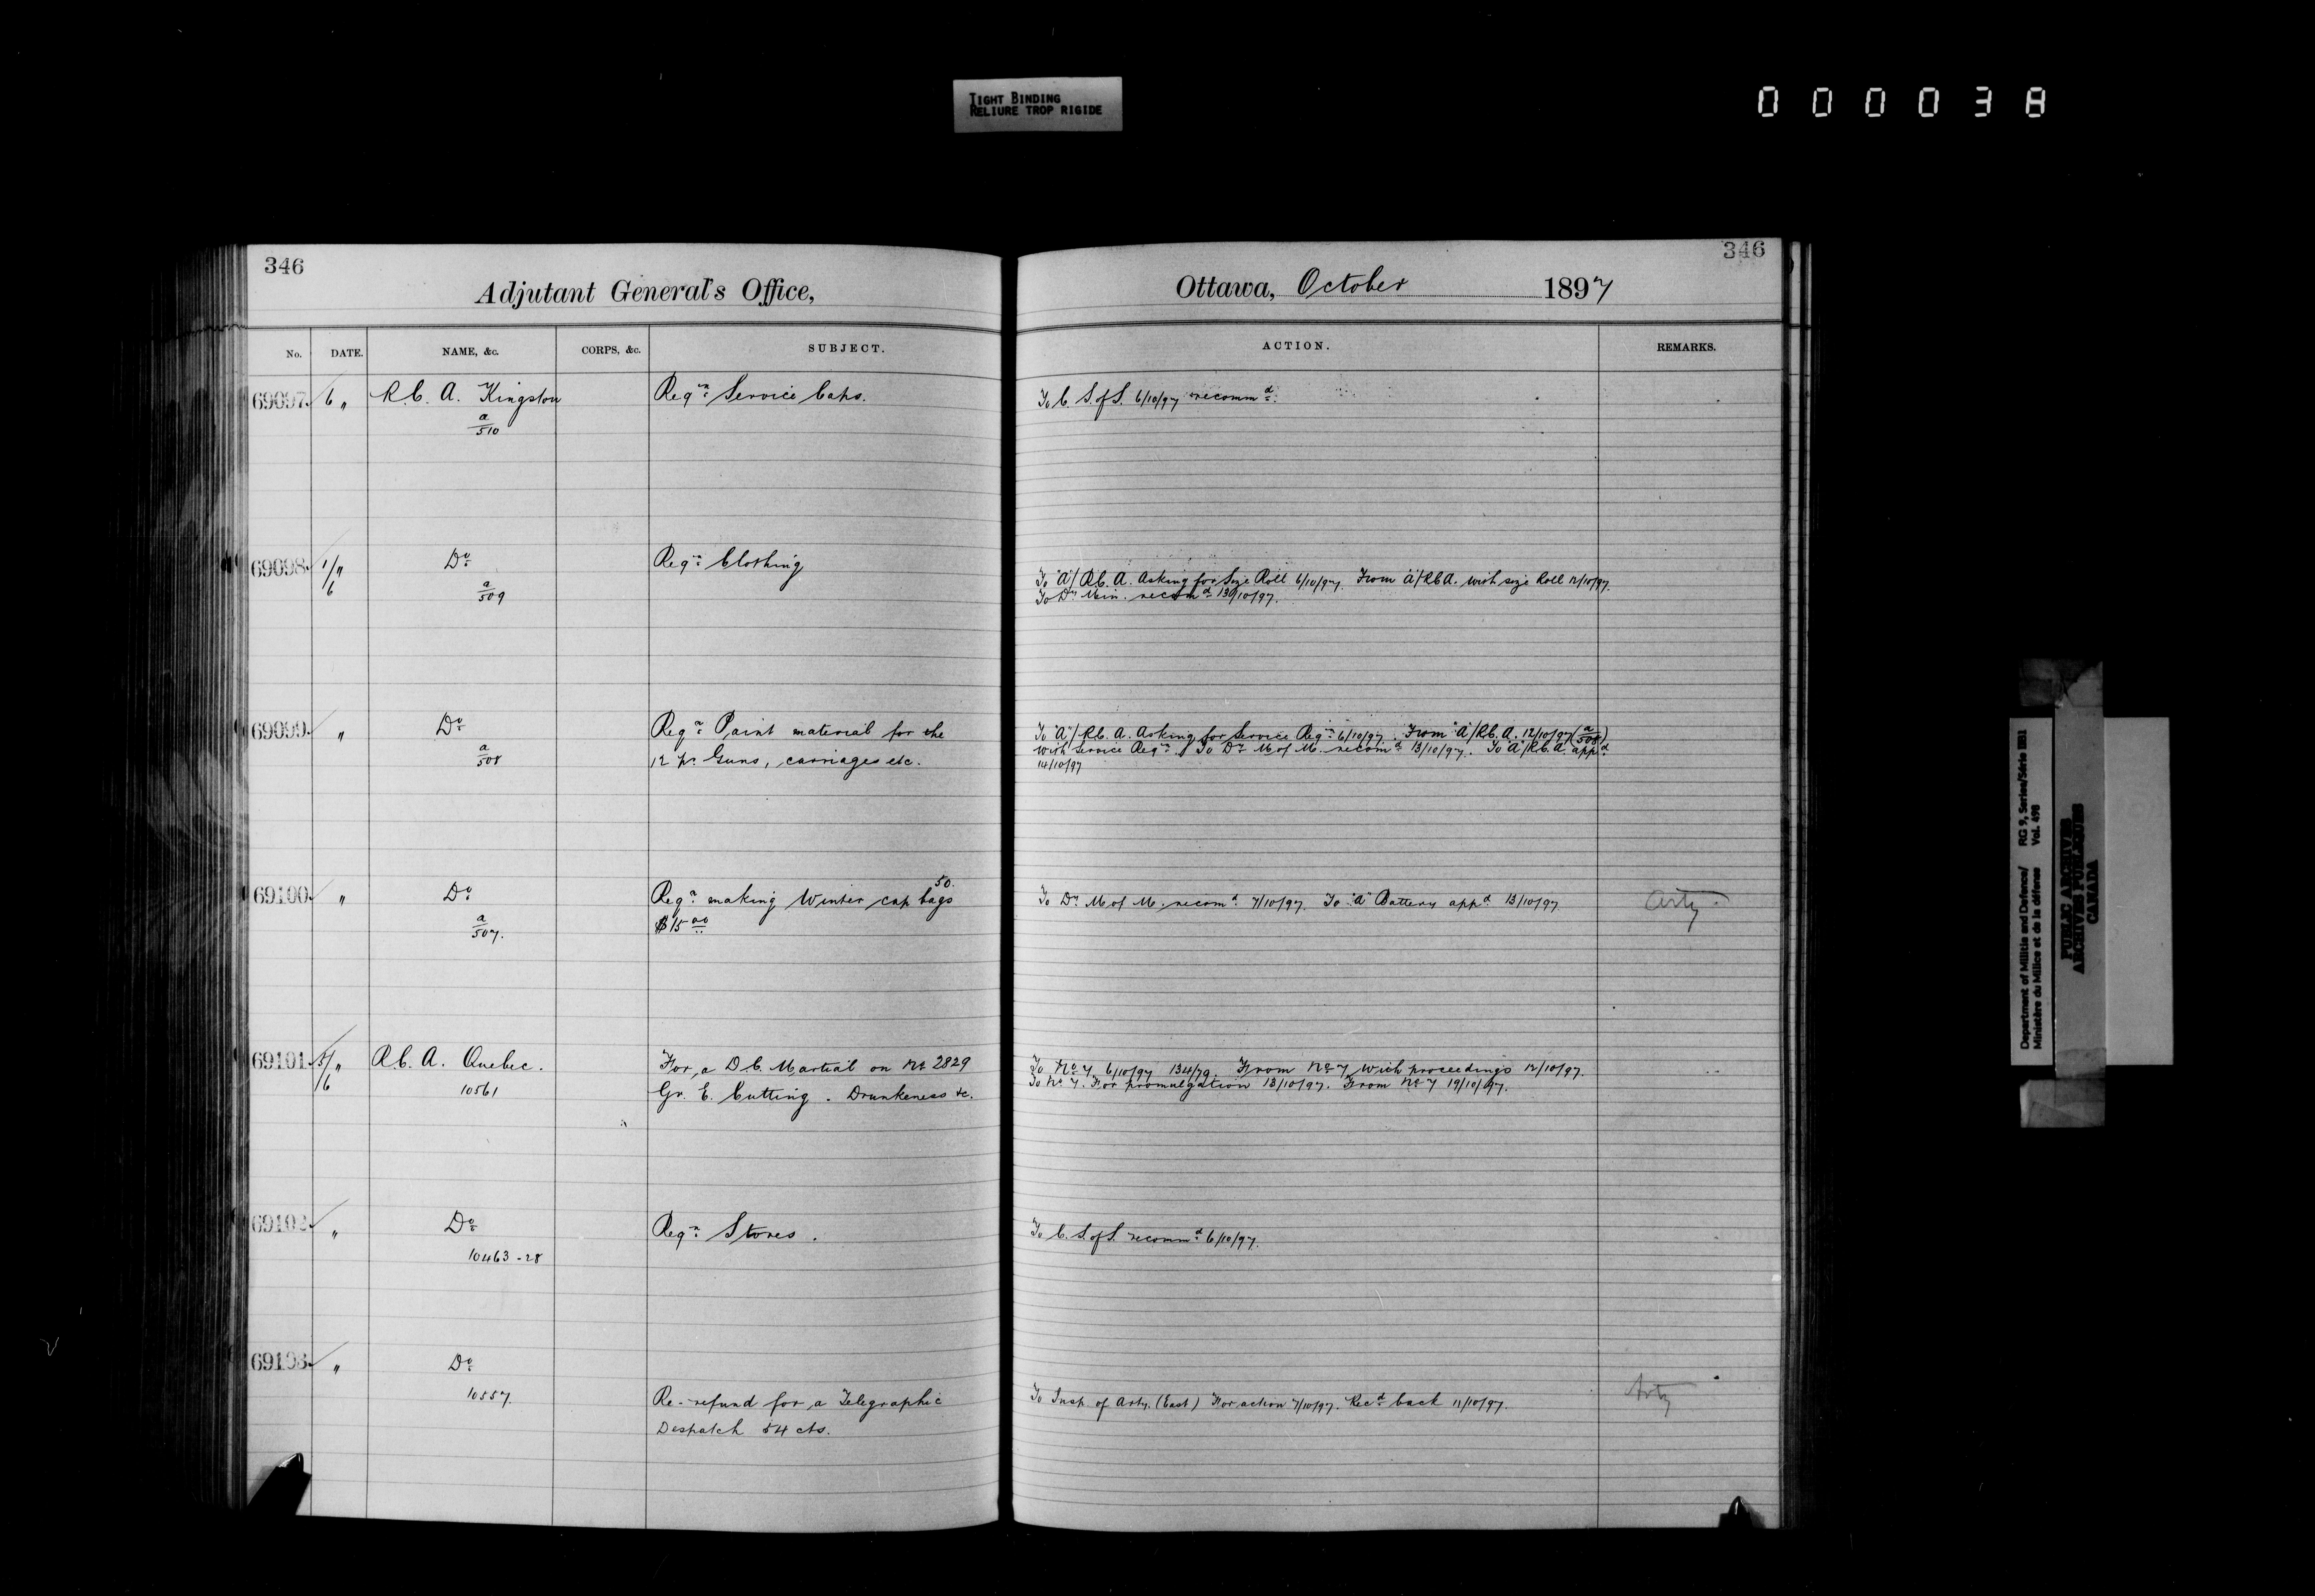 TIGHT BINDING
RELIURE TROP RIGIDE
000038
346
346
Adjutant General's Office,
Ottawa, October 1897
No. DATE. NAME, &c. CORPS, &c. SUBJECT. ACTION. REMARKS.
69097. 6 " R.C.A. Kingston Reqn. Service Caps. To C. S. of S. 6/10/97 recommd.
a/510
69098. 1/6 " Do Reqn. Clothing
a/509
To "A"/R.C.A. Asking for Size Roll 6/10/97. From "A"/R.C.A. with size Roll 12/10/97.
To Dy. Min. recomd 13/10/97.
69099. " Do Reqn. Paint material for the
a/508 12 pr. Guns, carriages etc.
To "A"/R.C.A. Asking for Service Reqn. 6/10/97. From "A"/R.C.A. 12/10/97 (a/508)
with Service Reqn. To Dy. M of M. recomd 13/10/97. To "A"/R.C.A. appd
14/10/97
69100. " Do Reqn. making Winter cap bags 50.
a/507. $15.00
To Dy. M of M. recomd. 7/10/97. To "A" Battery appd. 13/10/97 Arty.
69101. 5/6 " R.C.A. Quebec. For a D.C. Martial on No 2829
10561 Gr. E. Cutting. Drunkeness &c.
To No 7 6/10/97 134/79. From No 7 with proceedings 12/10/97.
To No 7. For promulgation 13/10/97. From No 7 19/10/97.
69102. " Do Reqn. Stores. To C. S. of S. recommd 6/10/97.
10463-28
69103. " Do
10557. Re-refund for a Telegraphic
Despatch 54 cts.
To Insp. of Arty. (East) For action 7/10/97. Recd back 11/10/97. Arty
Department of Militia and Defence/ RG 9, Series/Série IIB1
Ministère du Milice et de la défense Vol. 498
PUBLIC ARCHIVES
ARCHIVES PUBLIQUES
CANADA